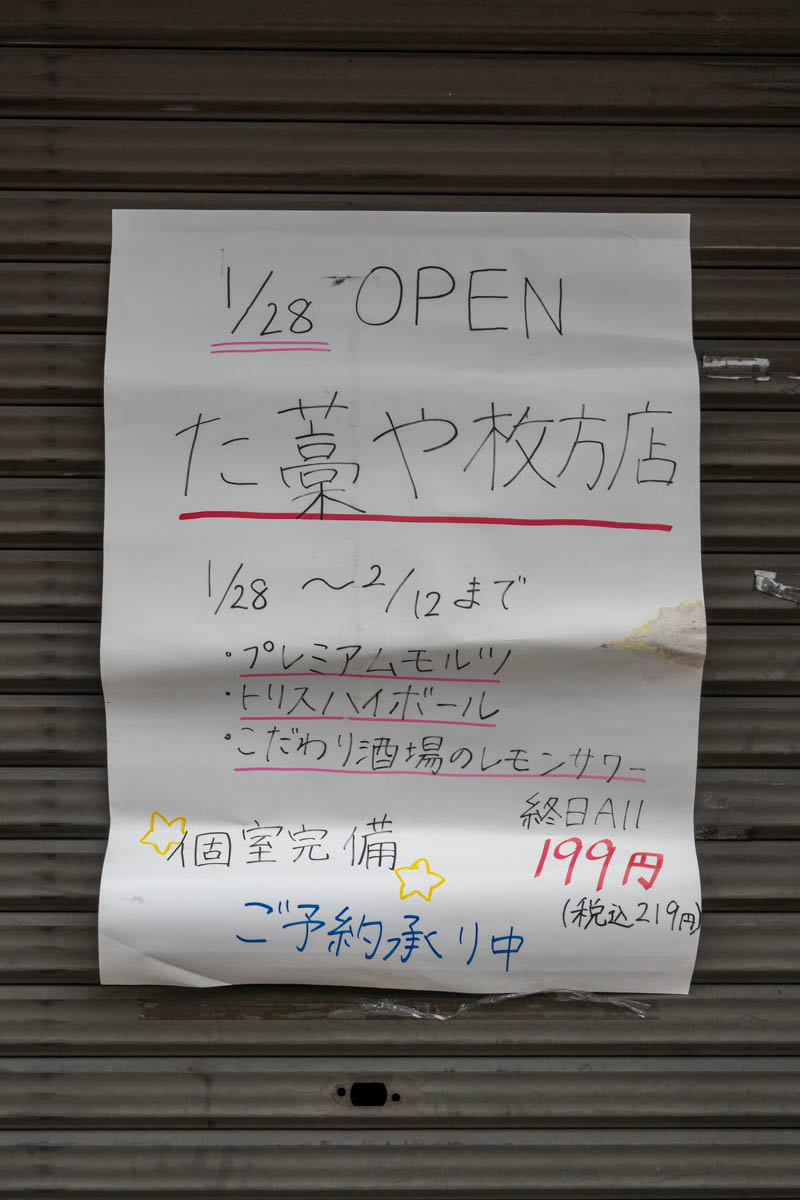 1/28 OPEN
た藁や枚方店
1/28 〜2/12まで
・プレミアムモルツ
・トリスハイボール
・こだわり酒場のレモンサワー
終日All
199円
(税込219円)
個室完備
ご予約承り中